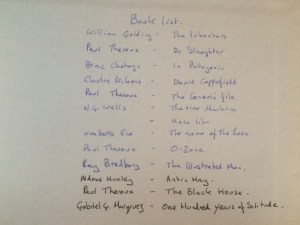 Book List.
William Golding - The Inheritors
Paul Theroux - Dr Slaughter
Bruce Chatwyn - In Patagonia
Charles Dickens - David Coppafield
Paul Theroux - The Consuls file
H.G. Wells - The time Machine
-
Umberto Eco - The name of the Rose
Paul Theroux - O-Zone
Ray Bradbury - The Illustrated Man.
Aldous Huxley - Antic Hay.
Paul Theroux - The Black House.
Gabriel G. Marquez - One Hundred years of Solitude.